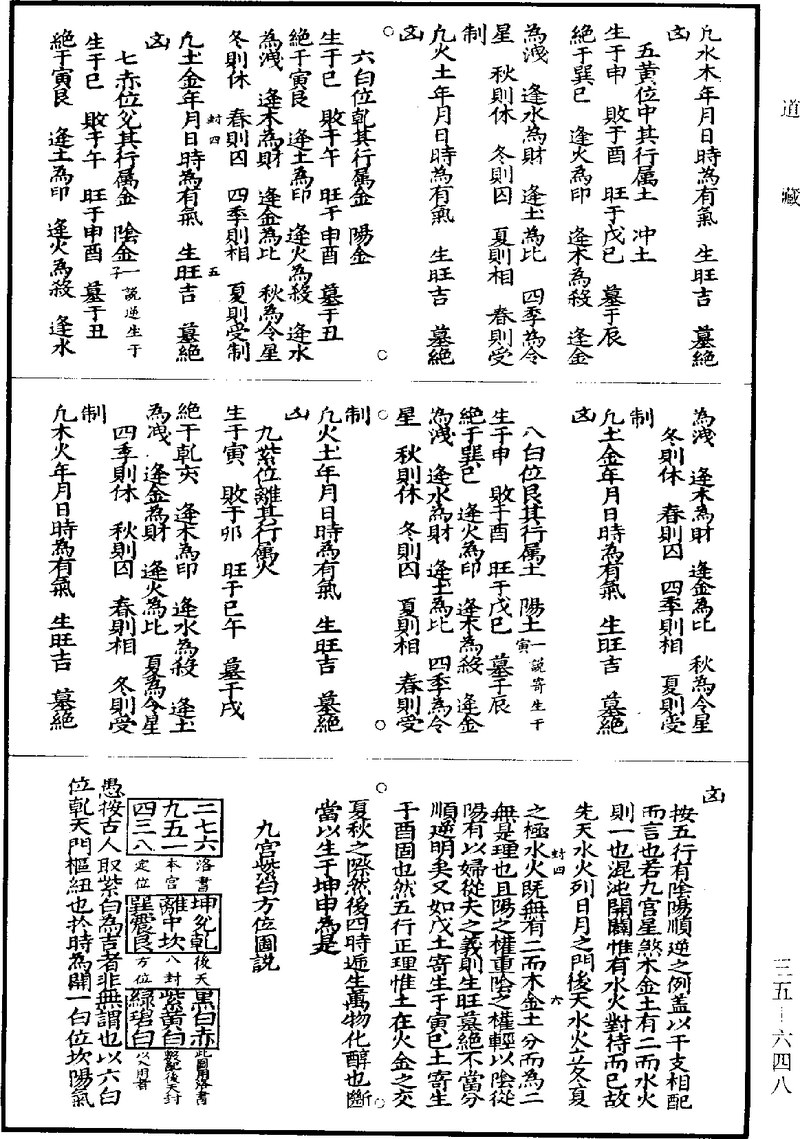 道藏
凡水木年月日時為有氣　生旺吉　墓絶
凶
五黄位中其行属土　冲土
生于申　敗于酉　旺于戊巳　墓于辰
絶于巽巳　逢火為印　逢木為殺　逢金
為洩　逢水為財　逢土為比　四季為令
星　秋則休　冬則囚　夏則相　春則受
制
凡火土年月日時為有氣　生旺吉　墓絶
凶
六白位乾其行属金　陽金
生于巳　敗于午　旺于申酉　墓于丑
絶于寅艮　逢土為印　逢火為殺　逢水
為洩　逢木為財　逢金為比　秋為令星
冬則休　春則囚　四季則相　夏則受制
封四　五
凡土金年月日時為有氣　生旺吉　墓絶
凶
七赤位兊其行属金　陰金一説逆生于子
生于巳　敗于午　旺于申酉　墓于丑
絶于寅艮　逢土為印　逢火為殺　逢水
為洩　逢木為財　逢金為比　秋為令星
冬則休　春則囚　四季則相　夏則受
制
凡土金年月日時為有氣　生旺吉　墓絶
凶
八白位艮其行属土　陽土一説寄生于寅
生于申　敗于酉　旺于戊巳　墓于辰
絶于巽巳　逢火為印　逢木為殺　逢金
為洩　逢水為財　逢土為比　四季為令
星　秋則休　冬則囚　夏則相　春則受
制
凡火土年月日時為有氣　生旺吉　墓絶
凶
九紫位離其行属火
生于寅　敗于卯　旺于巳午　墓于戌
絶于乾亥　逢木為印　逢水為殺　逢土
為洩　逢金為財　逢火為比　夏為令星
四季則休　秋則囚　春則相　冬則受
制
凡木火年月日時為有氣　生旺吉　墓絶
凶
按五行有陰陽順逆之例盖以干支相配
而言也若九宫星煞木金土有二而水火
則一也混沌開闢惟有水火對待而已故
先天水火列日月之門後天水火立冬夏
封四　六
之極水火既無有二而木金土分而為二
無是理也且陽之權重陰之權輕以陰從
陽有以婦從夫之義則生旺墓絶不當分
順逆明矣又如戊土寄生于寅巳土寄生
于酉固也然五行正理惟土在火金之交
夏秋之際然後四時遞生萬物化醇也斷
當以生于坤申為是
九宫紫白方位圖説
二七六　洛書　坤兊乾　後天　黒白赤　此圖用洛書
九五一　本宫　離中坎　八封　紫黄白　數配後天封
四三八　定位　巽震艮　方位　緑碧白　以入用者
愚按古人取紫白為吉者非無謂也以六白
位乾天門樞紐也於時為開一白位坎陽氣
三五—六四八